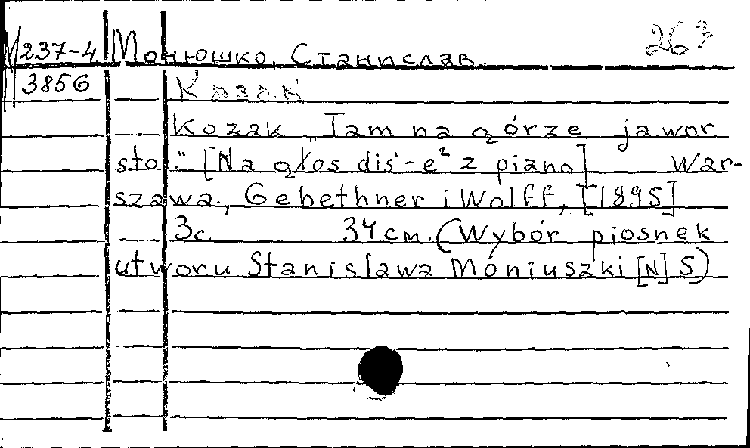 М 237-4 Монюшко, Станислав 26³
3856 Казак
Kozak „Tam na górze jawor
stoi." [Na głos dis'-e² z piano] War-
szawa, Gebethner i Wolff, [1895]
3c. 34 cm. (Wybór piosnek
utworu Stanisława Móniuszki [N] 5)